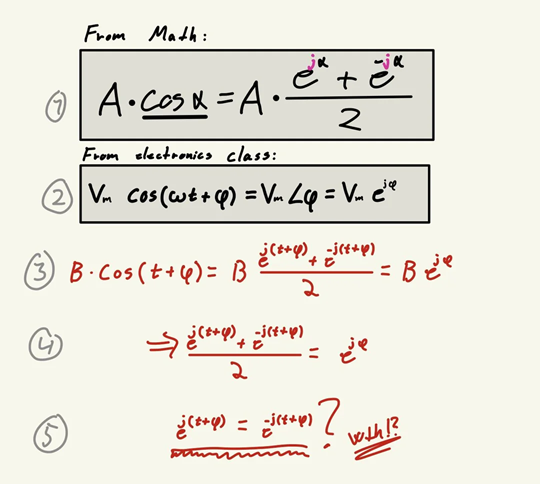 From Math:
① A·cos α = A · (e^{jα} + e^{-jα})/2
From electronics class:
② Vₘ cos(ωt+φ) = Vₘ ∠φ = Vₘ e^{jφ}
③ B·cos(t+φ) = B (e^{j(t+φ)} + e^{-j(t+φ)})/2 = B e^{jφ}
④ ⇒ (e^{j(t+φ)} + e^{-j(t+φ)})/2 = e^{jφ}
⑤ e^{j(t+φ)} = e^{-j(t+φ)} ? wth!?